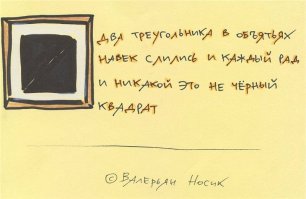 ДВА ТРЕУГОЛЬНИКА В ОБЪЯТЬЯХ
НАВЕК СЛИЛИСЬ И КАЖДЫЙ РАД
И НИКАКОЙ ЭТО НЕ ЧЁРНЫЙ
КВАДРАТ
© ВАЛЕРЬЯН НОСИК